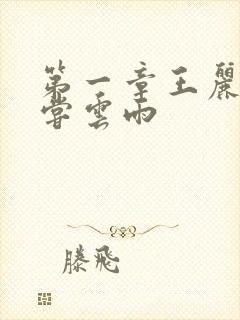 第一章王麗
嘗雲雨
滕飛